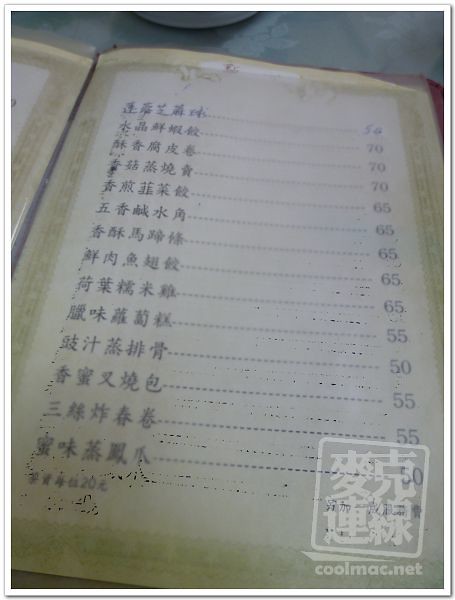 蓮蓉芝蔴球 50
水晶鮮蝦餃 70
酥香腐皮卷 70
香菇蒸燒賣 70
香煎韮菜餃 65
五香鹹水角 65
香酥馬蹄條 65
鮮肉魚翅餃 65
荷葉糯米雞 65
臘味蘿蔔糕 55
豉汁蒸排骨 50
香蜜叉燒包 55
三絲炸春卷 55
蜜味蒸鳳爪 50
茶資每位20元
另加一成服務費
麥克連線
coolmac.net